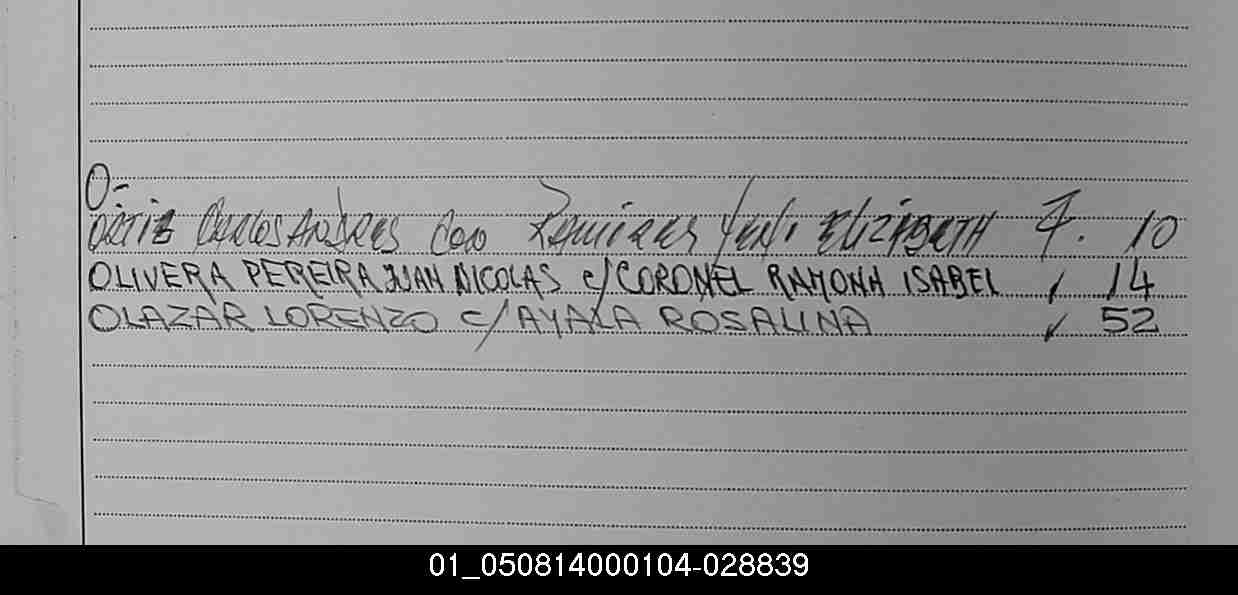 O-
ORTIZ CARLOS ANDRES CON RAMIREZ ELIZABETH F. 10
OLIVERA PEREIRA JUAN NICOLAS c/ CORONEL RAMONA ISABEL ✓ 14
OLAZAR LORENZO c/ AYALA ROSALINA ✓ 52
01_050814000104-028839